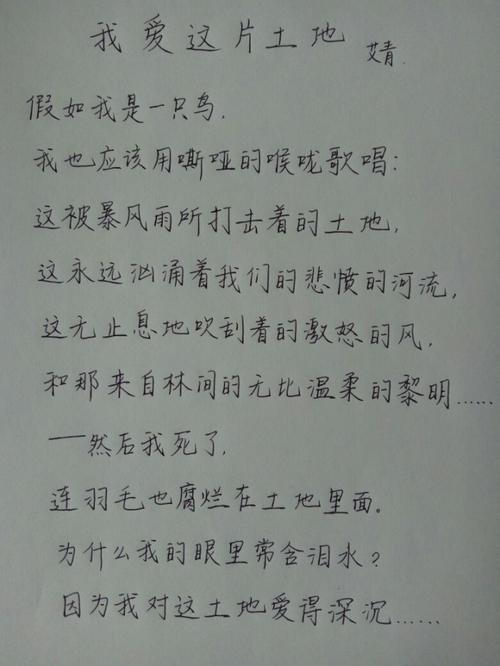 我爱这片土地
艾青.
假如我是一只鸟,
我也应该用嘶哑的喉咙歌唱:
这被暴风雨所打击着的土地,
这永远汹涌着我们的悲愤的河流,
这无止息地吹刮着的激怒的风,
和那来自林间的无比温柔的黎明……
——然后我死了,
连羽毛也腐烂在土地里面。
为什么我的眼里常含泪水?
因为我对这土地爱得深沉……